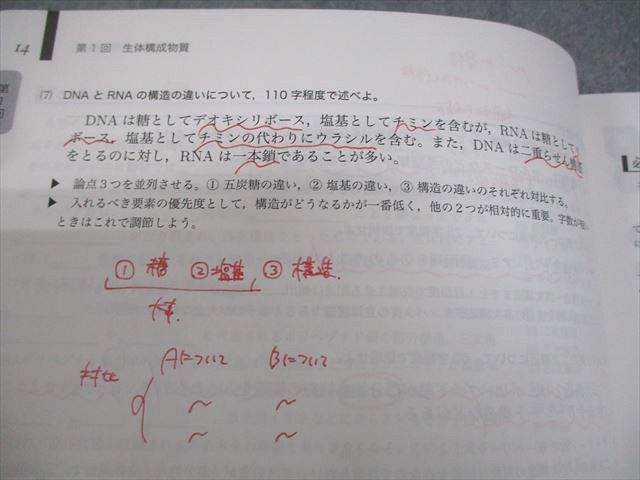 14
第1回 生体構成物質
(7) DNAとRNAの構造の違いについて，110字程度で述べよ。
DNAは糖としてデオキシリボース，塩基としてチミンを含むが，RNAは糖として
ボース，塩基としてチミンの代わりにウラシルを含む。また，DNAは二重らせん
をとるのに対し，RNAは一本鎖であることが多い。
▶ 論点3つを並列させる。① 五炭糖の違い，② 塩基の違い，③ 構造の違いのそれぞれ対比する。
▶ 入れるべき要素の優先度として，構造がどうなるかが一番低く，他の2つが相対的に重要。字数が
ときはこれで調節しよう。
① 糖 ② 塩基 ③ 構造.
対比 Aについて Bについて
〜 〜
〜 〜